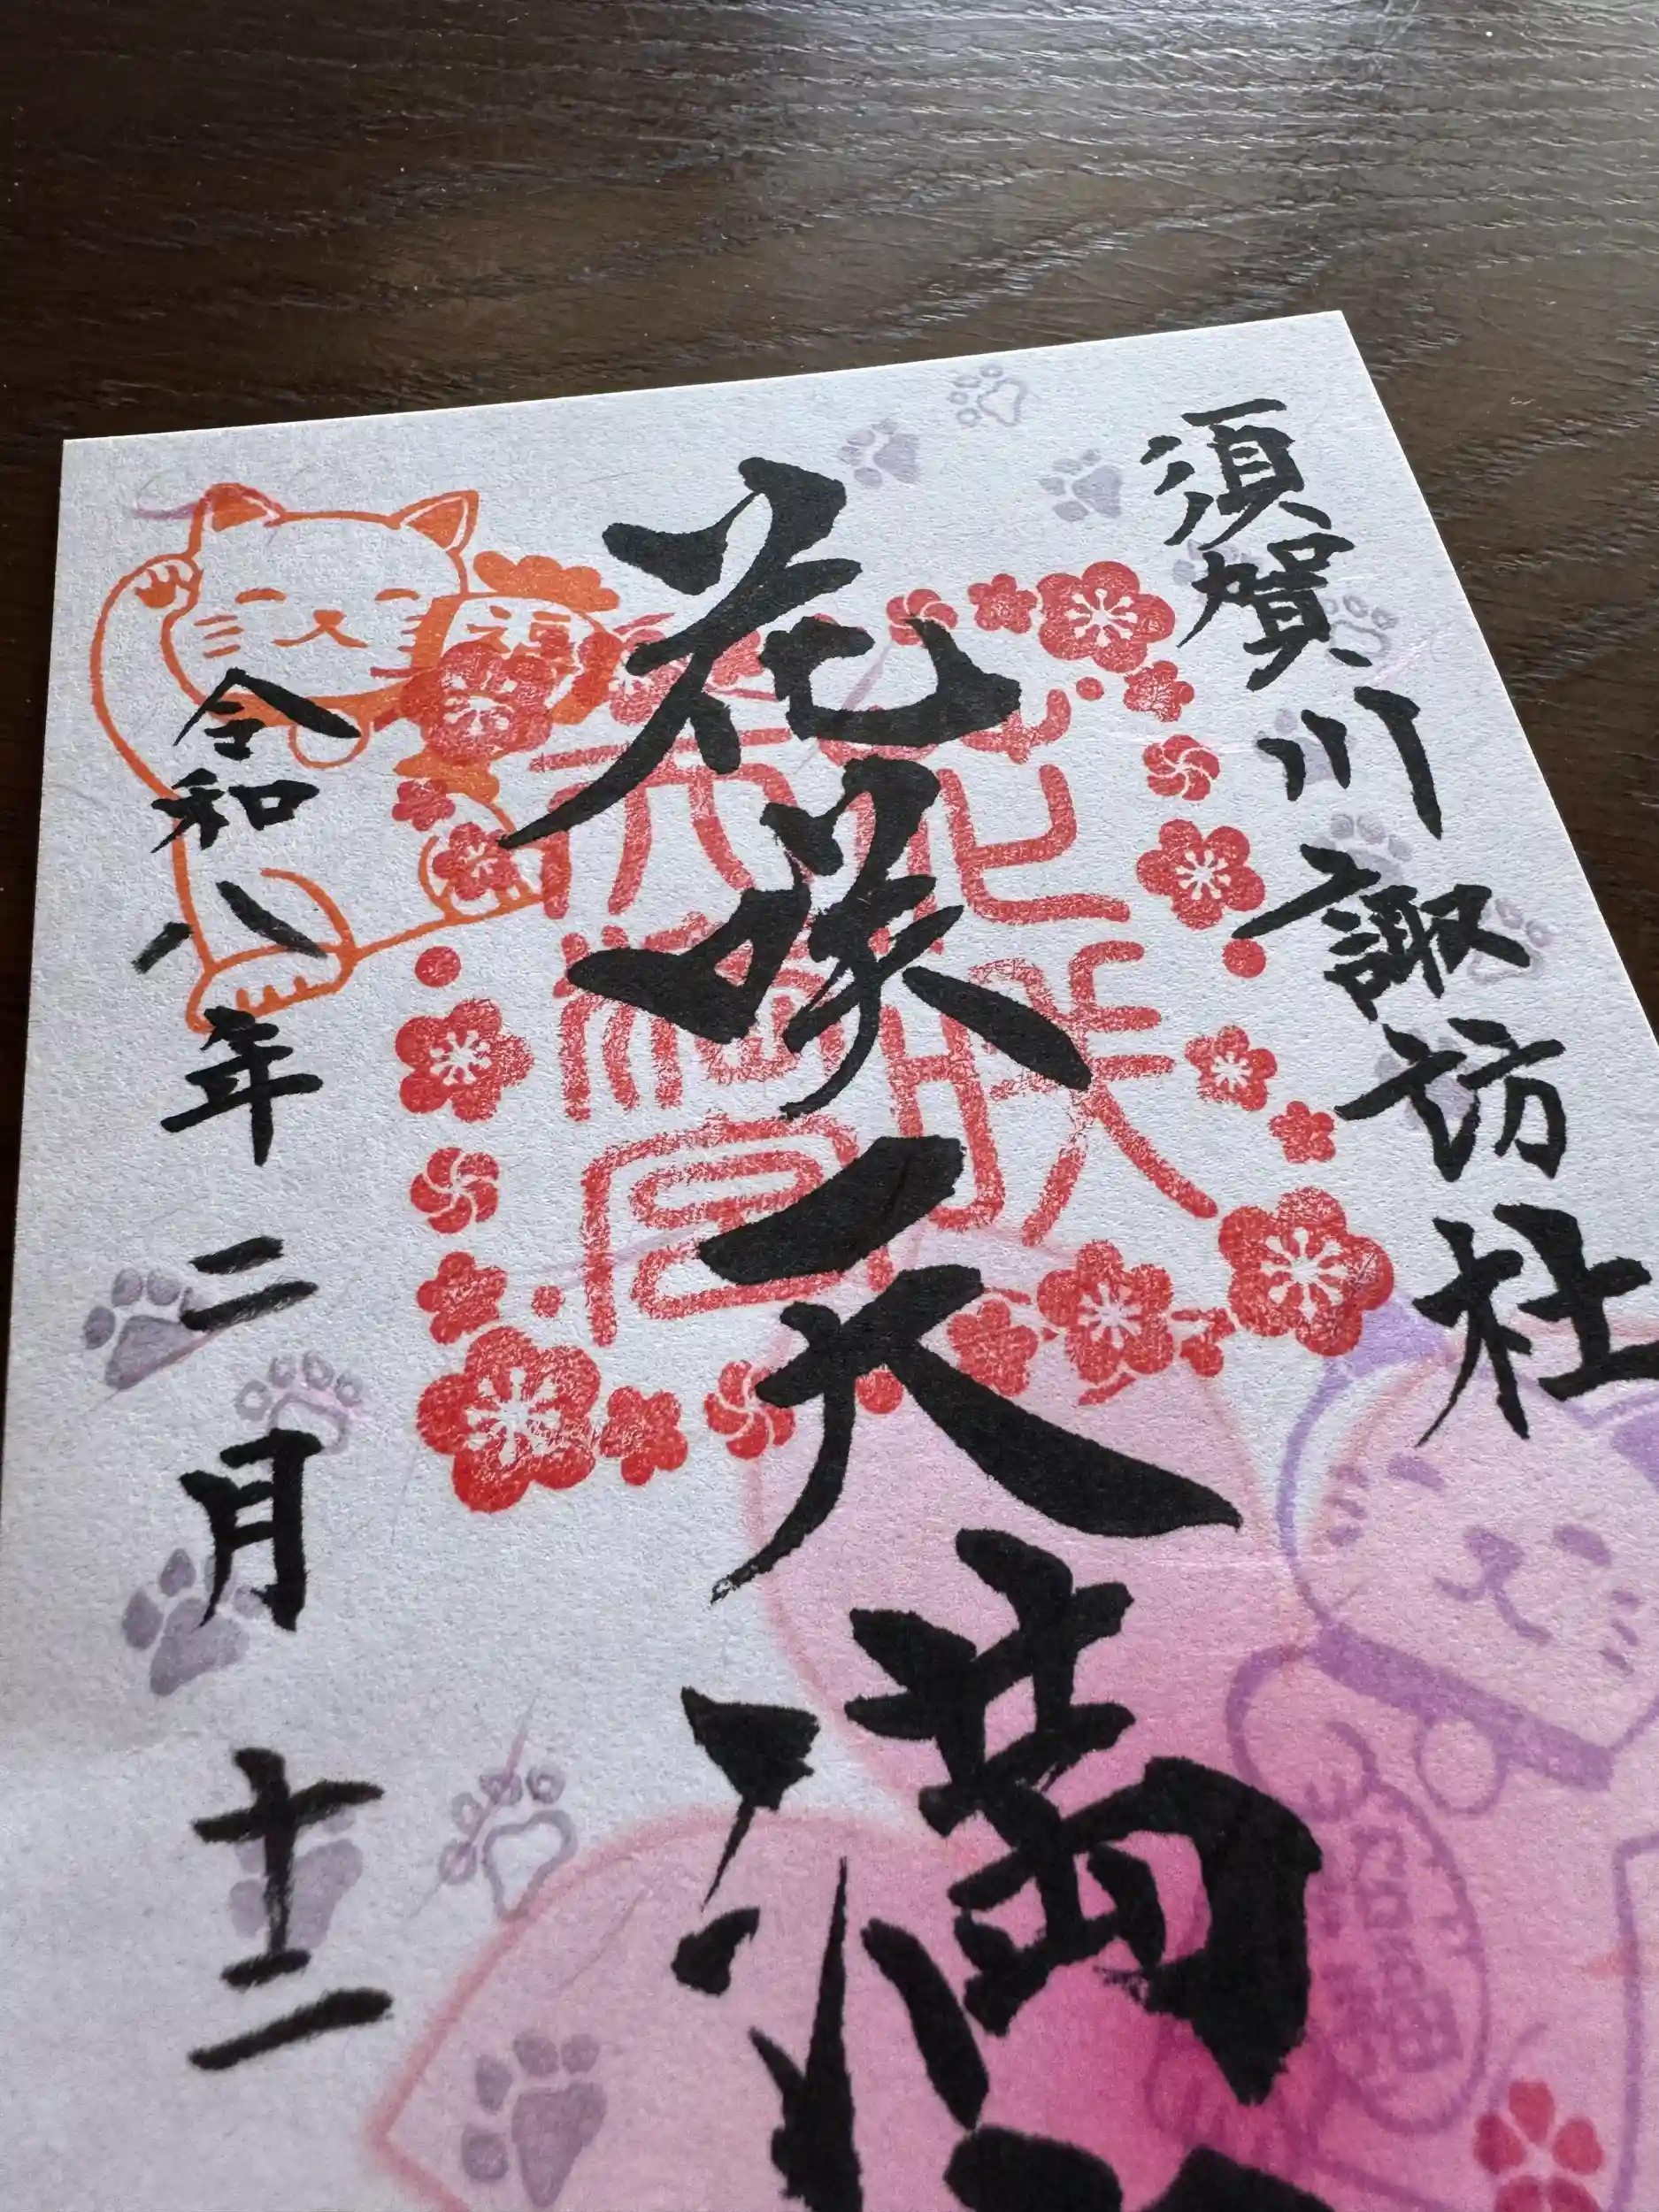 須賀川諏訪社
花咲天満
花咲
天満宮
令和八年二月十二